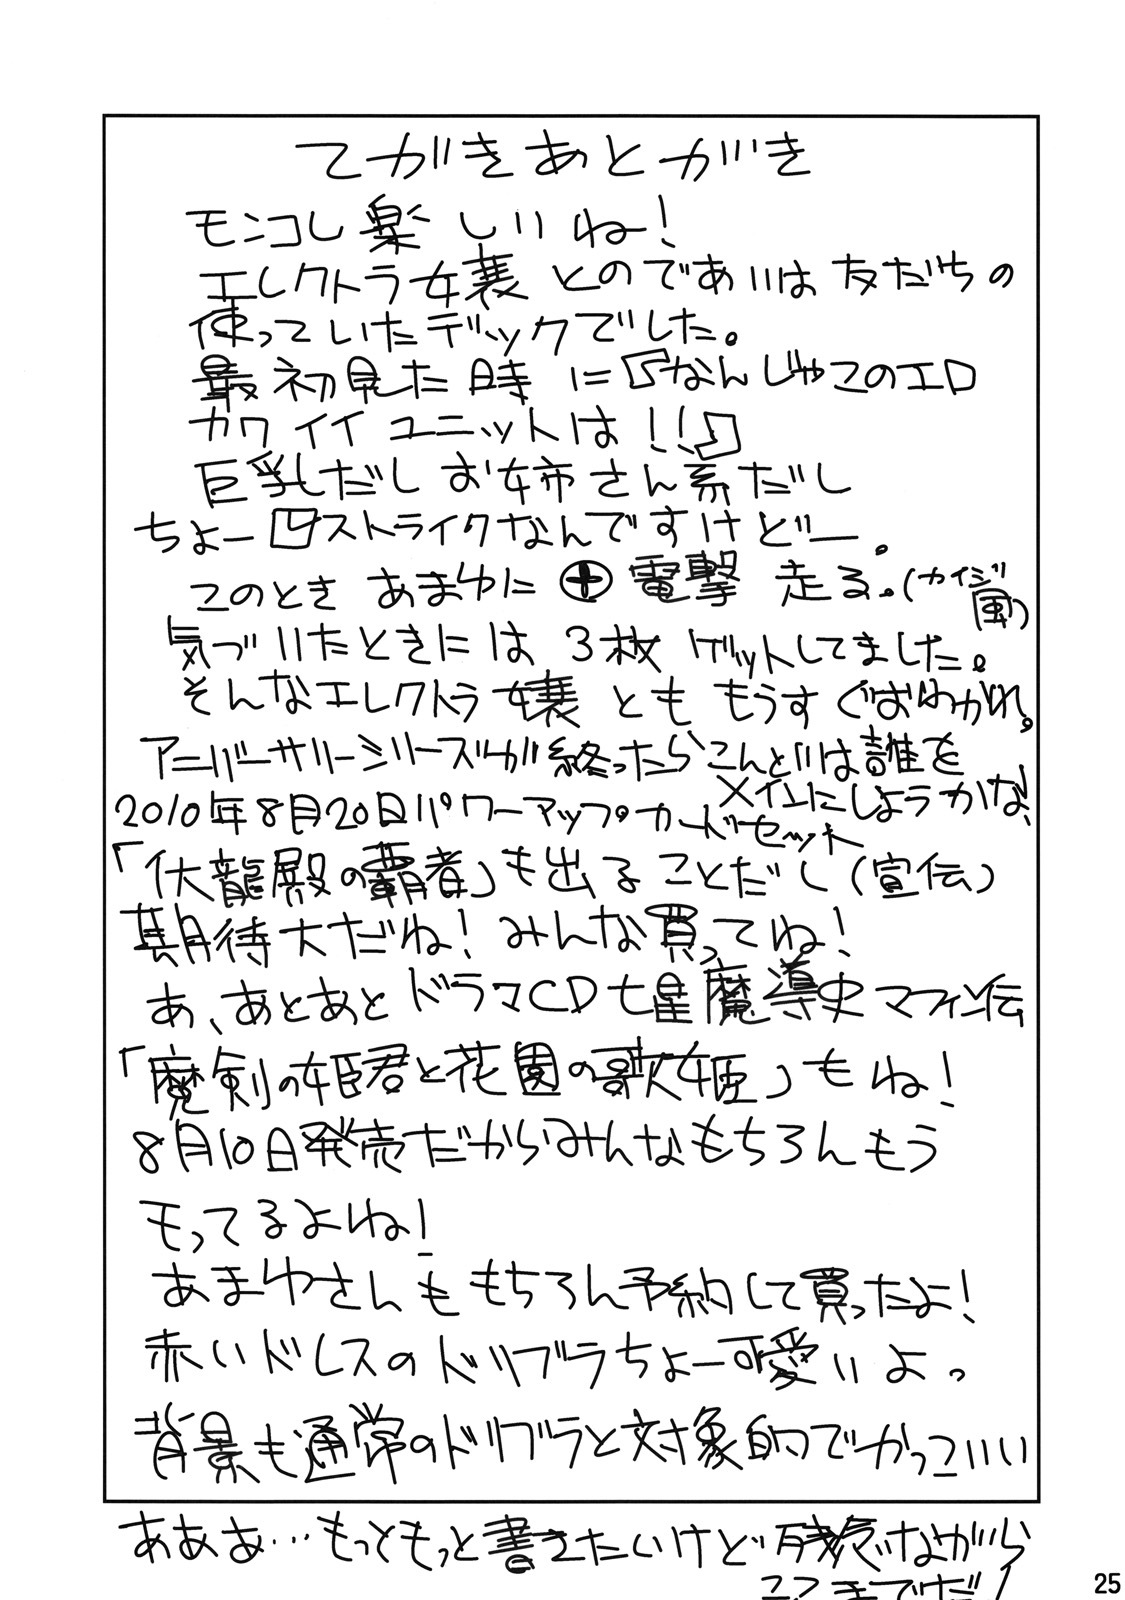 てがきあとがき
モンコレ楽しいね！
エレクトラ嬢とのであいは友だちの
使っていたデックでした。
最初見た時に『なんじゃこのエロ
カワイイユニットは！！』
巨乳だしお姉さん系だし
ちょーストライクなんですけどー。
このときあまゆに電撃走る。（カイジ風）
気づいたときには3枚ゲットしてました。
そんなエレクトラ嬢とももうすぐおわかれ。
アニバーサリーシリーズが終ったらこんどは誰を
メインにしようかな！
2010年8月20日パワーアップカードセット
「伏龍殿の覇者」も出ることだし（宣伝）
期待大だね！みんな買ってね！
あ、あとあとドラマCD七星魔導史マフィン伝
「魔剣の姫君と花園の歌姫」もね！
8月10日発売だからみんなもちろんもう
モってるよね！
あまゆさんももちろん予約して買ったよ！
赤いドレスのドリブラちょー可愛いよっ
背景も通常のドリブラと対象的でかっこいい
あああ…もっともっと書きたいけど残念ながら
ここまでだ！
25